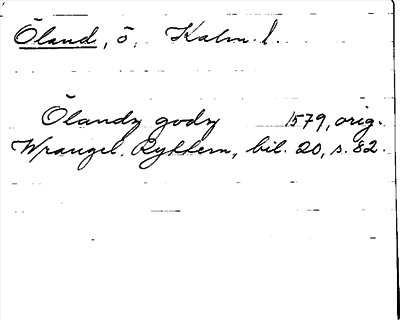 Öland, ö, Kalm. l.
Ölandz godz 1579, orig.
Wrangel. Ryttern, bil. 20, s. 82.